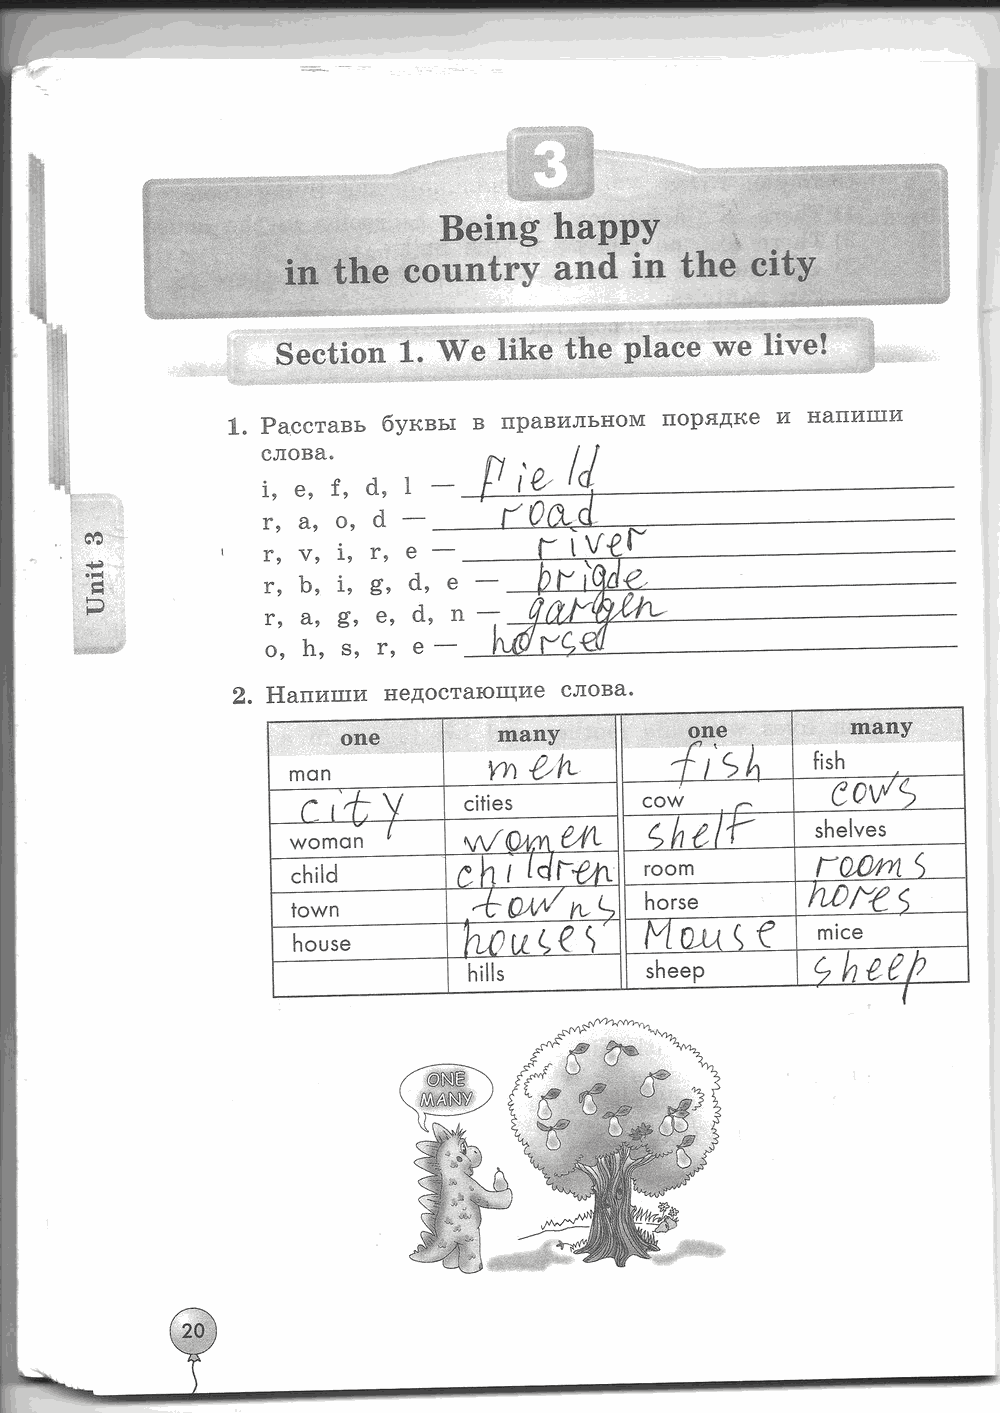 3
Being happy
in the country and in the city
Section 1. We like the place we live!
1. Расставь буквы в правильном порядке и напиши
слова.
i, e, f, d, l — field
r, a, o, d — road
r, v, i, r, e — river
r, b, i, g, d, e — brigde
r, a, g, e, d, n — garden
o, h, s, r, e — horse
Unit 3
2. Напиши недостающие слова.
one many one many
man men fish fish
city cities cow cows
woman women shelf shelves
child children room rooms
town towns horse hores
house houses Mouse mice
hills sheep sheep
ONE
MANY
20